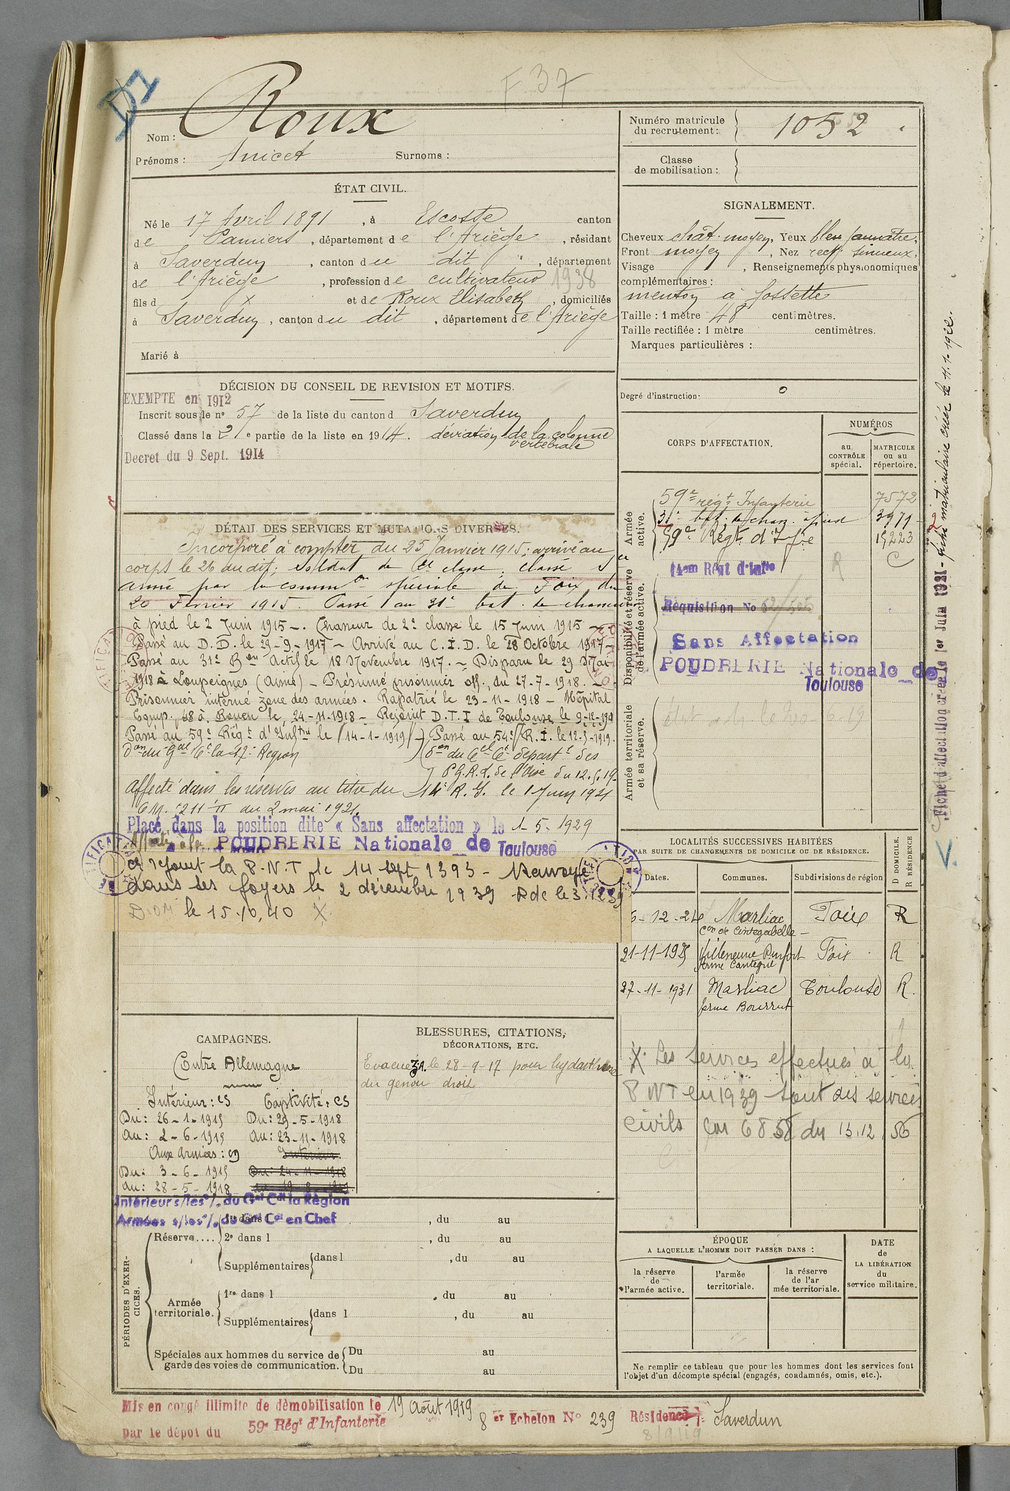 D1
F 37
Nom : Roux
Prénoms : Anicet Surnoms :
Numéro matricule du recrutement : 1052
Classe de mobilisation :
ÉTAT CIVIL.
Né le 17 Avril 1891, à Escosse canton
de Pamiers, département de l'Ariège, résidant
à Saverdun, canton du dit, département
de l'Ariège, profession de cultivateur 1938
fils d X et de Roux Elisabeth, domiciliés
à Saverdun, canton du dit, département de l'Ariège
Marié à
SIGNALEMENT.
Cheveux chât. moyen, Yeux bleu jaunâtre.
Front moyen, Nez rect. sinueux.
Visage , Renseignements physionomiques
complémentaires :
menton à fossette
Taille : 1 mètre 48 centimètres.
Taille rectifiée : 1 mètre centimètres.
Marques particulières :
Degré d'instruction : 0
DÉCISION DU CONSEIL DE REVISION ET MOTIFS.
EXEMPTE en 1912
Inscrit sous le n° 57 de la liste du canton d Saverdun
Classé dans la 2e partie de la liste en 1914. déviation de la colonne
vertébrale
Decret du 9 Sept. 1914
DÉTAIL DES SERVICES ET MUTATIONS DIVERSES.
Incorporé à compter du 25 Janvier 1915; arrivé au
corps le 26 du dit; soldat de 2e classe. Classé S
armé par la common spéciale de Foix du
20 Février 1915. Passé au 31e bat. de chasseurs
à pied le 2 Juin 1915 -. Chasseur de 2e classe le 15 Juin 1915 -
Passé au D.D. le 29-9-1917 - Arrivé au C.I.D. le 18 Octobre 1917 -
Passé au 31e Bon Actif le 18 Novembre 1917. - Disparu le 29 Mai
1918 à Loupeignes (Aisne) - Présumé prisonnier off. du 27-7-1918. -
Prisonnier interné zone des armées. Rapatrié le 23-11-1918 - Hôpital
Equip. 68 à Rouen le 24-11-1918 - Rejoint D.T.I de Toulouse le 9-12-1918
Passé au 59e Régt d'Inftrie le 14-1-1919 Passé au 54e R.I. le 12-5-1919.
don du Gal Ct la 17e Région
Affecté dans les réserves au titre du 14e R.I. le 1 Juin 1921
Placé dans la position dite « Sans affectation » le 1-5-1929
POUDRERIE Nationale de Toulouse
a rejoint la P.N.T le 14 sept 1393 - Renvoyé
dans ses foyers le 2 décembre 1939 - R de le 3.12.39
le 15.10.40 X
CORPS D'AFFECTATION.
NUMÉROS
au CONTRÔLE spécial.
MATRICULE ou au répertoire.
Armée active.
59e régt Infanterie 7572
31e bat. de chas. à pied 3979
59e Régt d'Ifie 15223
Disponibilité et réserve de l'armée active.
14em Régt d'Infie R C
Réquisition No
Sans Affectation
POUDRERIE Nationale de
Toulouse
Armée territoriale et sa réserve.
Fiche d'affectation créée le 1er Juin 1921 - fiche matriculaire créée le 11.1.1922.
LOCALITÉS SUCCESSIVES HABITÉES
PAR SUITE DE CHANGEMENTS DE DOMICILE OU DE RÉSIDENCE.
Dates. Communes. Subdivisions de région D DOMICILE. R RÉSIDENCE
6-12-24 Marliac Foix R
con de Cintegabelle -
21-11-1925 Foix R
27-11-1931 Marliac Toulouse R.
ferme Bourrut
X. Les services effectués à la
P.N.T en 1939 sont des services
civils Cm 6858 du 13.12.56
CAMPAGNES.
Contre Allemagne
Intérieur : CS Captivité : CS
Du : 26-1-1915 Du : 29-5-1918
Au : 2-6-1915 Au : 23-11-1918
Aux Armées : Intérieur
Du : 3-6-1915 Du : 24-11-1918
Au : 28-5-1918
Intérieur s/les % du Gal Cdt la Région
Armées s/les % du Gal Cdt en Chef
BLESSURES, CITATIONS,
DÉCORATIONS, ETC.
Evacué le 28-9-17 pour hydarthrose
du genou droit
PÉRIODES D'EXERCICES.
Réserve....
1re dans l , du au
2e dans l , du au
Supplémentaires dans l , du au
Armée territoriale.
1re dans l , du au
Supplémentaires dans l , du au
Spéciales aux hommes du service de garde des voies de communication.
Du au
Du au
ÉPOQUE
A LAQUELLE L'HOMME DOIT PASSER DANS :
la réserve de l'armée active.
l'armée territoriale.
la réserve de l'armée territoriale.
DATE de LA LIBÉRATION du service militaire.
Ne remplir ce tableau que pour les hommes dont les services font
l'objet d'un décompte spécial (engagés, condamnés, omis, etc.).
Mis en congé illimité de démobilisation le 19 Août 1919 8 er Echelon N° 239 Résidence : Saverdun
par le dépôt du 59e Rég't d'Infanterie